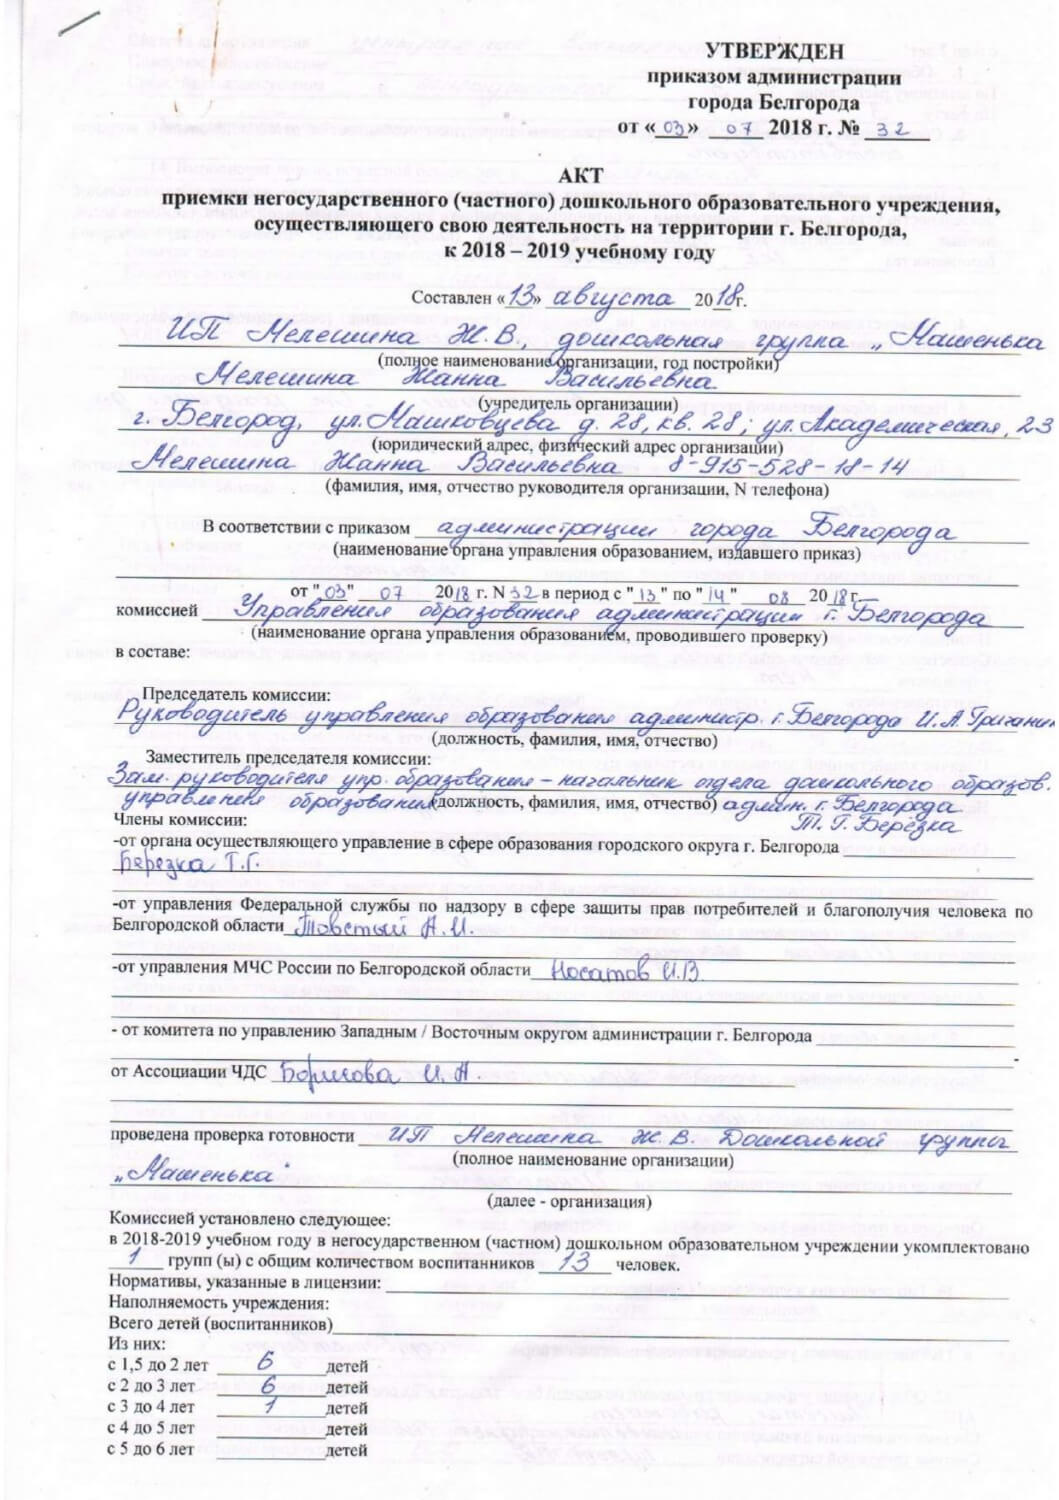 УТВЕРЖДЕН
приказом администрации
города Белгорода
от «03» 07 2018 г. № 32
АКТ
приемки негосударственного (частного) дошкольного образовательного учреждения,
осуществляющего свою деятельность на территории г. Белгорода,
к 2018 – 2019 учебному году
Составлен «13» августа 2018г.
ИП Мелешина Ж.В., дошкольная группа „Машенька
(полное наименование организации, год постройки)
Мелешина Жанна Васильевна
(учредитель организации)
г. Белгород, ул. Машковцева д. 28, кв. 28; ул. Академическая, 23
(юридический адрес, физический адрес организации)
Мелешина Жанна Васильевна 8-915-528-18-14
(фамилия, имя, отчество руководителя организации, N телефона)
В соответствии с приказом администрации города Белгорода
(наименование органа управления образованием, издавшего приказ)
от "03" 07 2018 г. N 32 в период с "13" по "14" 08 2018 г.
комиссией Управления образования администрации г. Белгорода
(наименование органа управления образованием, проводившего проверку)
в составе:
Председатель комиссии:
Руководитель управления образования администр. г. Белгорода И.А. Гричаник
(должность, фамилия, имя, отчество)
Заместитель председателя комиссии:
Зам. руководителя упр. образования – начальник отдела дошкольного образов.
управления образования (должность, фамилия, имя, отчество) админ. г. Белгорода
Члены комиссии: Т. Г. Берёзка
-от органа осуществляющего управление в сфере образования городского округа г. Белгорода
Березка Т.Г.
-от управления Федеральной службы по надзору в сфере защиты прав потребителей и благополучия человека по
Белгородской области Товстый А.И.
-от управления МЧС России по Белгородской области Носатов И.В.
- от комитета по управлению Западным / Восточным округом администрации г. Белгорода
от Ассоциации ЧДС Борисова И.А.
проведена проверка готовности ИП Мелешина Ж.В. Дошкольной группы
(полное наименование организации)
„Машенька"
(далее - организация)
Комиссией установлено следующее:
в 2018-2019 учебном году в негосударственном (частном) дошкольном образовательном учреждении укомплектовано
1 групп (ы) с общим количеством воспитанников 13 человек.
Нормативы, указанные в лицензии:
Наполняемость учреждения:
Всего детей (воспитанников)
Из них:
с 1,5 до 2 лет 6 детей
с 2 до 3 лет 6 детей
с 3 до 4 лет 1 детей
с 4 до 5 лет детей
с 5 до 6 лет детей